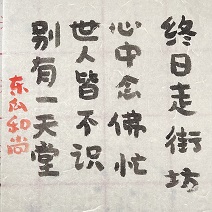 终日走街坊
心中念佛忙
世人皆不识
别有一天堂
东山和尚